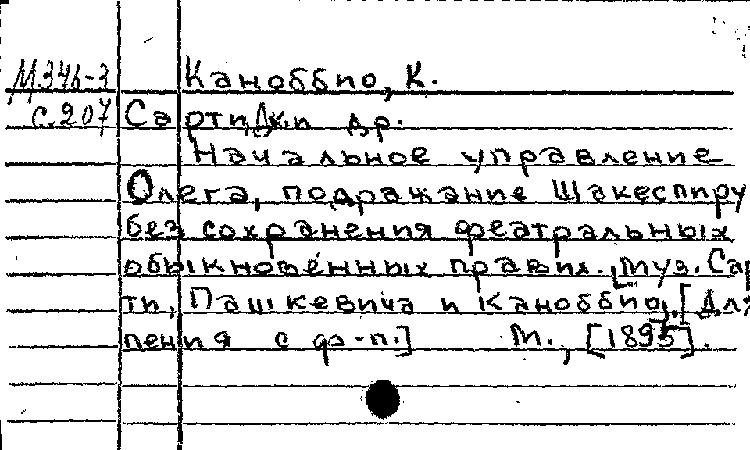 М.346-3 Каноббио, К.
с.207 Сарти, Дж. и др.
Начальное управление
Олега, подражание Шакеспиру
без сохранения феатральных
обыкновенных правил., муз. Сар
ти, Пашкевича и Каноббио, [Для
пения с ф-п.] М., [1895].